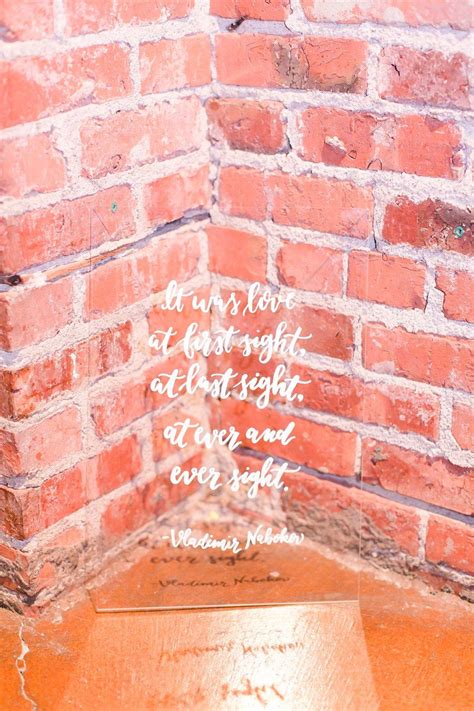 It was love
at first sight,
at last sight,
at ever and
ever sight.
-Vladimir Nabokov